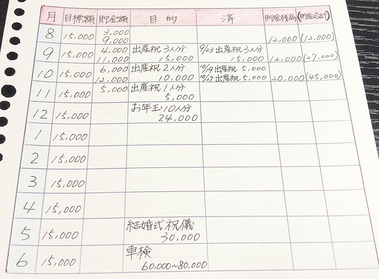 月 目標額 貯金額 目的 済 貯金残高 (貯金合計)
8 15,000 3,000
9,000 12,000 (12,000)
9 15,000 4,000 出産祝 3人分 出産祝 3人分
11,000 15,000 15,000 12,000 (27,000)
10 15,000 6,000 出産祝 2人分 出産祝 5,000
12,000 10,000 出産祝 5,000 20,000 (45,000)
11 15,000 5,000 出産祝 1人分
5,000
12 15,000 お年玉 10人分
24,000
1 15,000
2 15,000
3 15,000
4 15,000
5 15,000 結婚式祝儀
30,000
6 15,000 車検
60,000~80,000